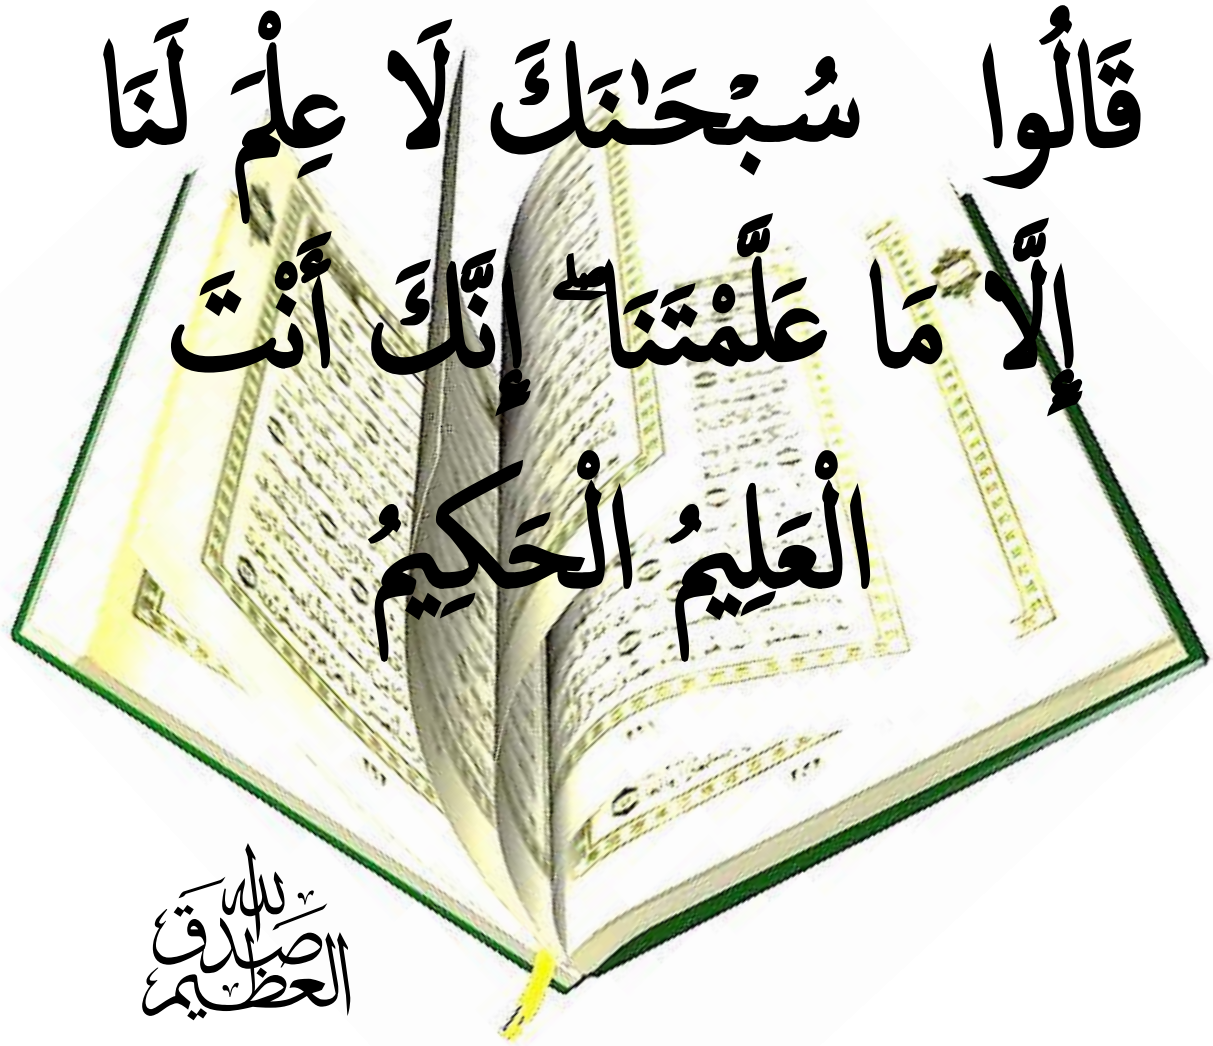 قَالُوا سُبْحَـٰنَكَ لَا عِلْمَ لَنَا
إِلَّا مَا عَلَّمْتَنَا ۖ إِنَّكَ أَنْتَ
الْعَلِيمُ الْحَكِيمُ
صدق الله
العظيم